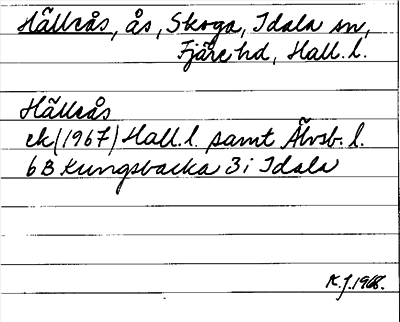 Hällsås, ås, Skoga, Idala sn,
Fjäre hd, Hall. l.
Hällsås
ek (1967) Hall. l. samt Älvsb. l.
6B Kungsbacka 3i Idala
K.J. 1968.